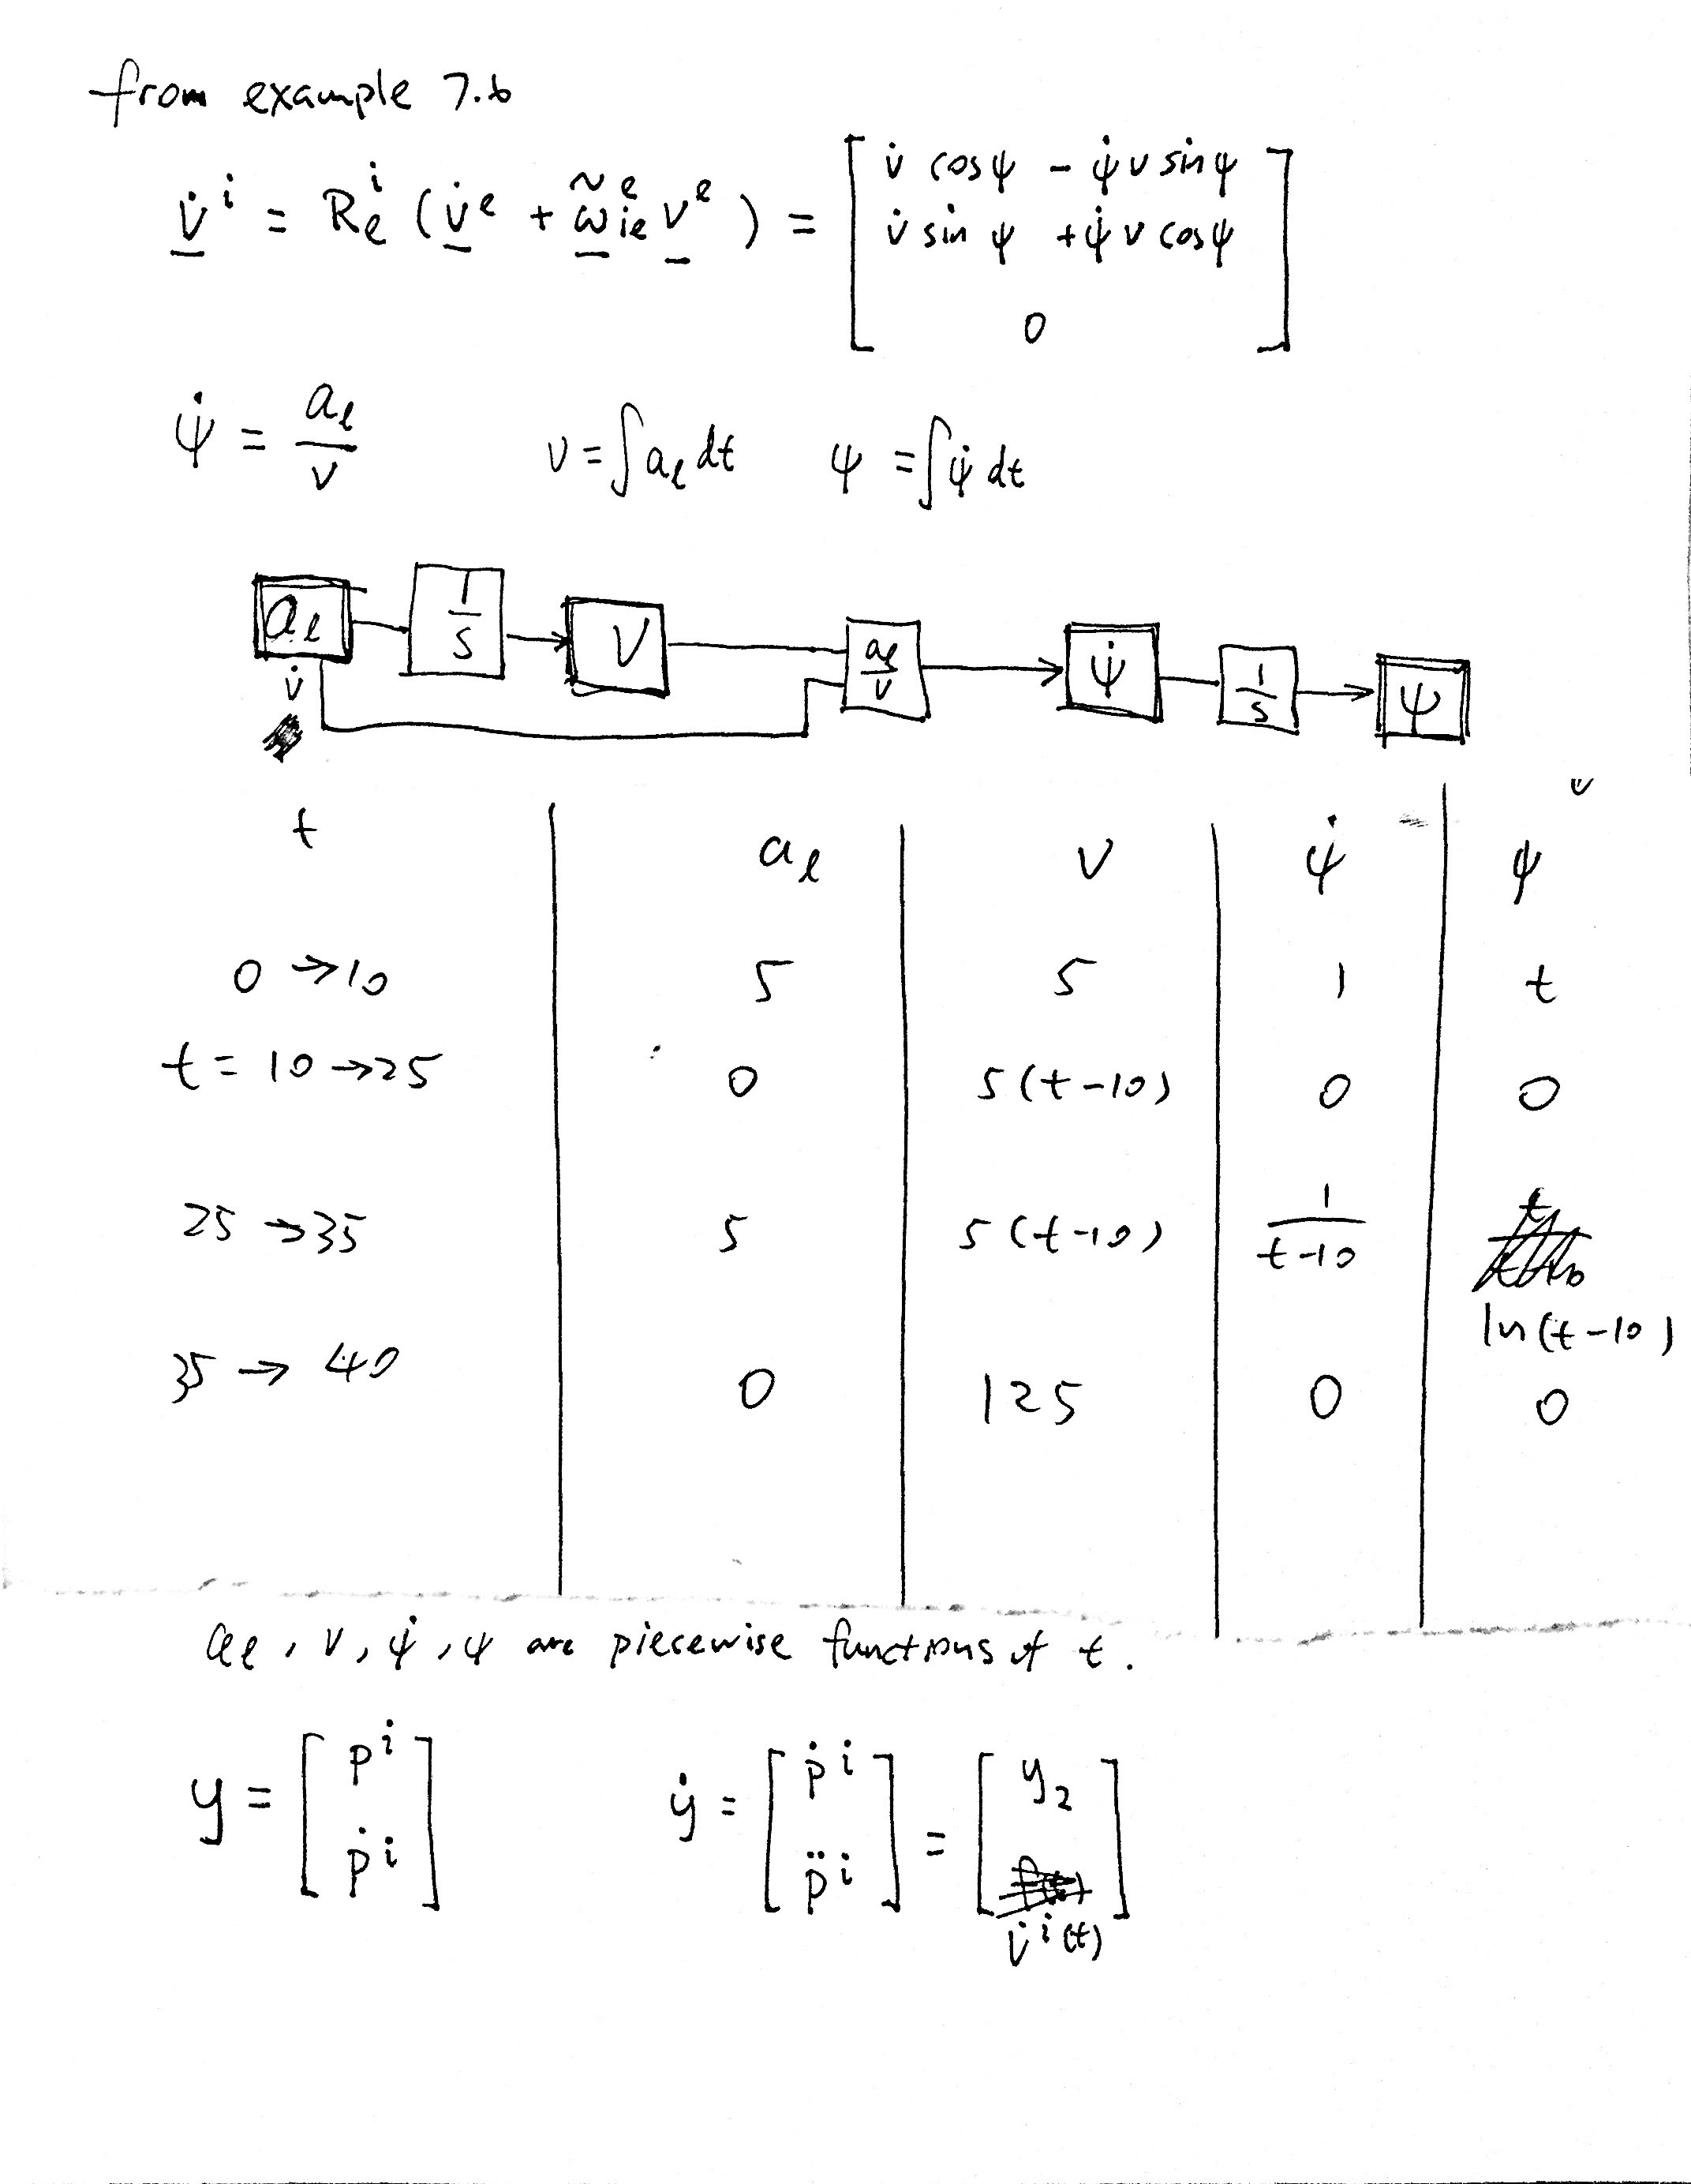 from example 7.6
v̇ⁱ = Rₑⁱ (v̇ᵉ + ω̃ᵢₑᵉ vᵉ) = [ v̇ cosψ - ψ̇ v sinψ
v̇ sin ψ + ψ̇ v cosψ
0 ]
ψ̇ = aₗ / v    v = ∫ aₗ dt    ψ = ∫ ψ̇ dt
aₗ   1/s   V   aₗ/v   ψ̇   1/s   ψ
v̇
t   aₗ   v   ψ̇   ψ
0 → 10   5   5   1   t
t = 10 → 25   0   5(t-10)   0   0
25 → 35   5   5(t-10)   1/(t-10)   ln(t-10)
35 → 40   0   125   0   0
aₗ, v, ψ̇, ψ are piecewise functions of t.
y = [ pⁱ   ẏ = [ ṗⁱ   = [ y₂
ṗⁱ ]   p̈ⁱ ]   v̇ⁱ(t) ]